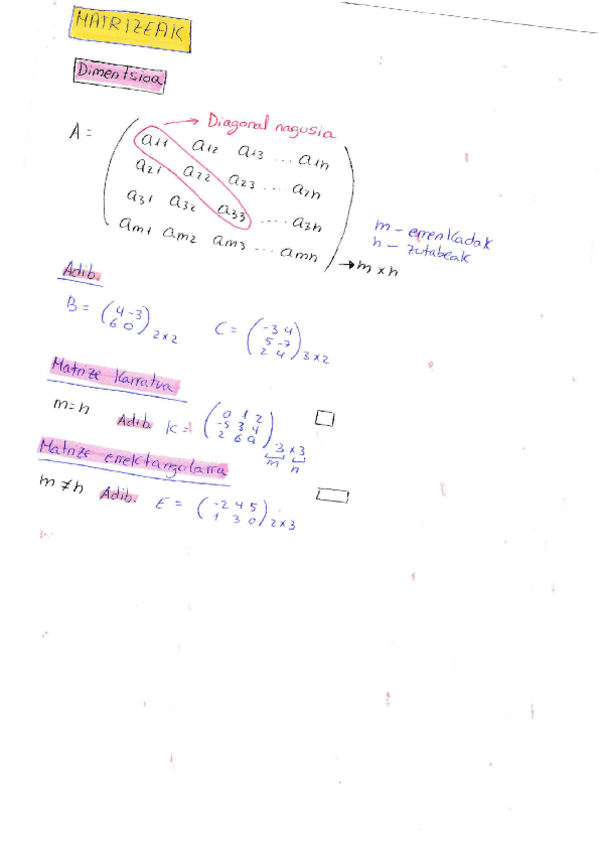 MATRIZEAK
Dimentsioa
→ Diagonal nagusia
A = ( a11 a12 a13 ... a1n
a21 a22 a23 .... a2n
a31 a32 a33 .... a3n
am1 am2 am3 ... amn ) → m x n
m - errenkadak
n - zutabeak
Adib.
B = ( 4 -3
6 0 ) 2x2
C = ( -3 4
5 -7
2 4 ) 3x2
Matrize Karratua
m=n Adib. K = ( 0 1 2
-5 3 4
2 6 9 ) 3x3
m n
Matrize errektangolarra
m ≠ n Adib. E = ( -2 4 5
1 3 0 ) 2x3